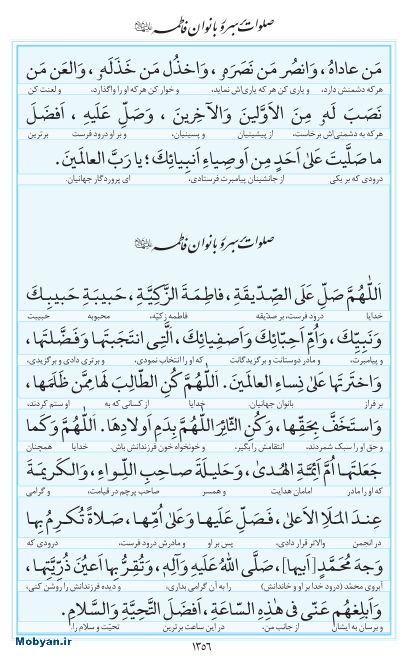 صلوات بر سرور بانوان فاطمه
مَن عاداهُ ، وَانصُر مَن نَصَرَهُ ، وَاخذُل مَن خَذَلَهُ ، وَالعَن مَن
هر که دشمنش دارد، و یاری کن هر که یاری‌اش نماید، و خوار کن هر که او را واگذارد، و لعنت کن
نَصَبَ لَهُ مِنَ الاَوَّلینَ وَالآخِرینَ ، وَصَلِّ عَلَیهِ ، اَفضَلَ
هر که به دشمنی‌اش برخاست، از پیشینیان و پسینیان، و بر او درود فرست برترین
ما صَلَّیتَ عَلیٰ اَحَدٍ مِن اَوصِیاءِ اَنبِیائِكَ ؛ یا رَبَّ العالَمینَ.
درودی که بر یکی از جانشینان پیامبرت فرستادی، ای پروردگار جهانیان.
صلوات بر سرور بانوان فاطمه
اَللّٰهُمَّ صَلِّ عَلَی الصِّدّیقَةِ، فاطِمَةَ الزَّکِیَّةِ، حَبیبَةِ حَبیبِكَ
خدایا درود فرست، بر صدّیقه فاطمه زکیّه، محبوبه حبیبت
وَنَبِیِّكَ، وَاُمِّ اَحِبّائِكَ وَاَصفِیائِكَ، اَلَّتِی انتَجَبتَها وَفَضَّلتَها،
و پیامبرت، و مادر دوستانت و برگزیدگانت که او را انتخاب نمودی، و برتری دادی و برگزیدی،
وَاختَرتَها عَلیٰ نِساءِ العالَمینَ. اَللّٰهُمَّ کُنِ الطّالِبَ لَها مِمَّن ظَلَمَها،
بر فراز بانوان جهانیان. خدایا از کسانی که به او ستم کردند،
وَاستَخَفَّ بِحَقِّها، وَکُنِ الثّائِرَ اللّٰهُمَّ بِدَمِ اَولادِها. اَللّٰهُمَّ وَکَما
و حق او را سبک شمردند، انتقامش را بگیر، و خونخواه خون فرزندانش باش. خدایا همچنان
جَعَلتَها اُمَّ اَئِمَّةِ الهُدیٰ، وَحَلیلَةَ صاحِبِ اللِّواءِ، وَالکَریمَةَ
که او را مادر امامان هدایت و همسر صاحب پرچم در قیامت، و گرامی
عِندَ المَلَاِ الاَعلیٰ، فَصَلِّ عَلَیها وَعَلیٰ اُمِّها، صَلاةً تُکرِمُ بِها
در انجمن والاتر قرار دادی، پس بر او و مادرش درود فرست، درودی که
وَجهَ مُحَمَّدٍ [اَبیها]، صَلَّی اللّٰهُ عَلَیهِ وَآلِهِ، وَتُقِرُّ بِها اَعیُنَ ذُرِّیَّتِها،
آبروی محمد (درود خدا بر او و خاندانش) را به آن گرامی بداری، و دیده فرزندانش را روشن کنی،
وَاَبلِغهُم عَنّی فی هٰذِهِ السّاعَةِ، اَفضَلَ التَّحِیَّةِ وَالسَّلامِ.
و برسان به ایشان از جانب من، در این ساعت برترین تحیّت و سلام را.
۱۳۵۶
Mobyan.ir